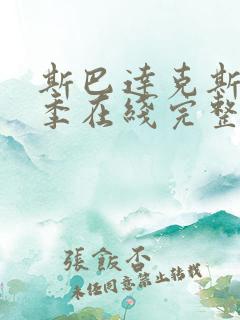 斯巴達克斯
季在綫完整
張飯否
未經同意禁止轉載